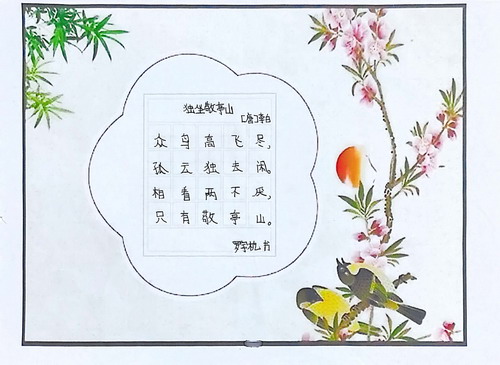 独坐敬亭山
[唐]李白
众鸟高飞尽，
孤云独去闲。
相看两不厌，
只有敬亭山。
书